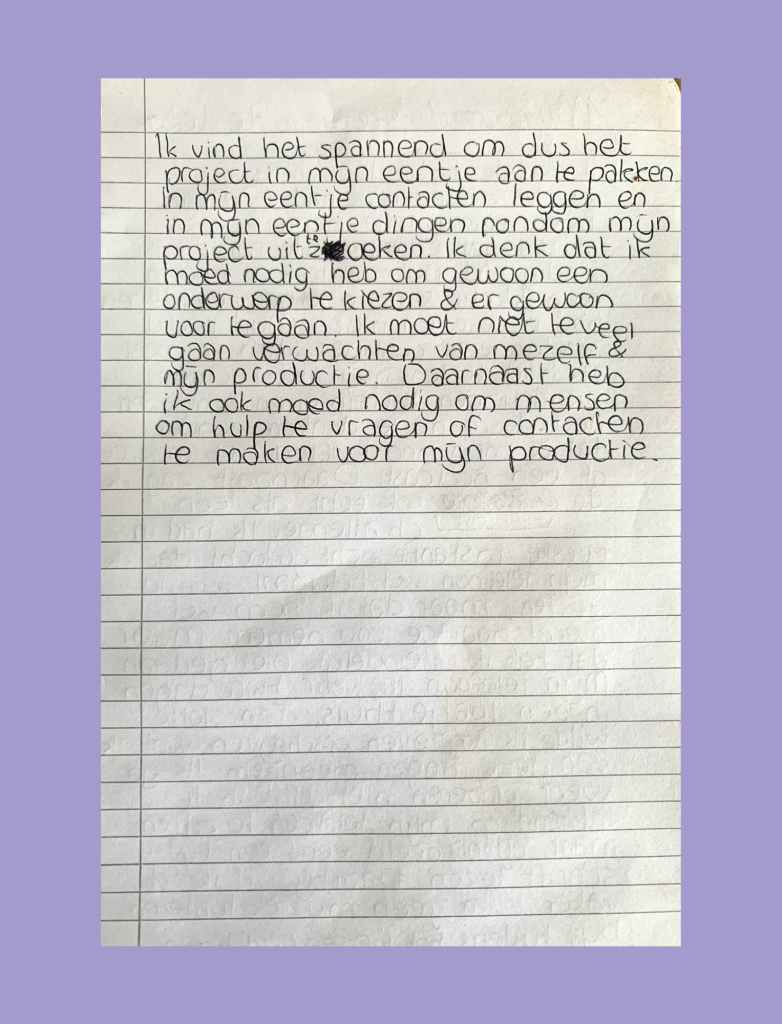 Ik vind het spannend om dus het
project in mijn eentje aan te pakken
in mijn eentje contacten leggen en
in mijn eentje dingen rondom mijn
project uit te zoeken. Ik denk dat ik
moed nodig heb om gewoon een
onderwerp te kiezen & er gewoon
voor te gaan. Ik moet niet te veel
gaan verwachten van mezelf &
mijn productie. Daarnaast heb
ik ook moed nodig om mensen
om hulp te vragen of contacten
te maken voor mijn productie.